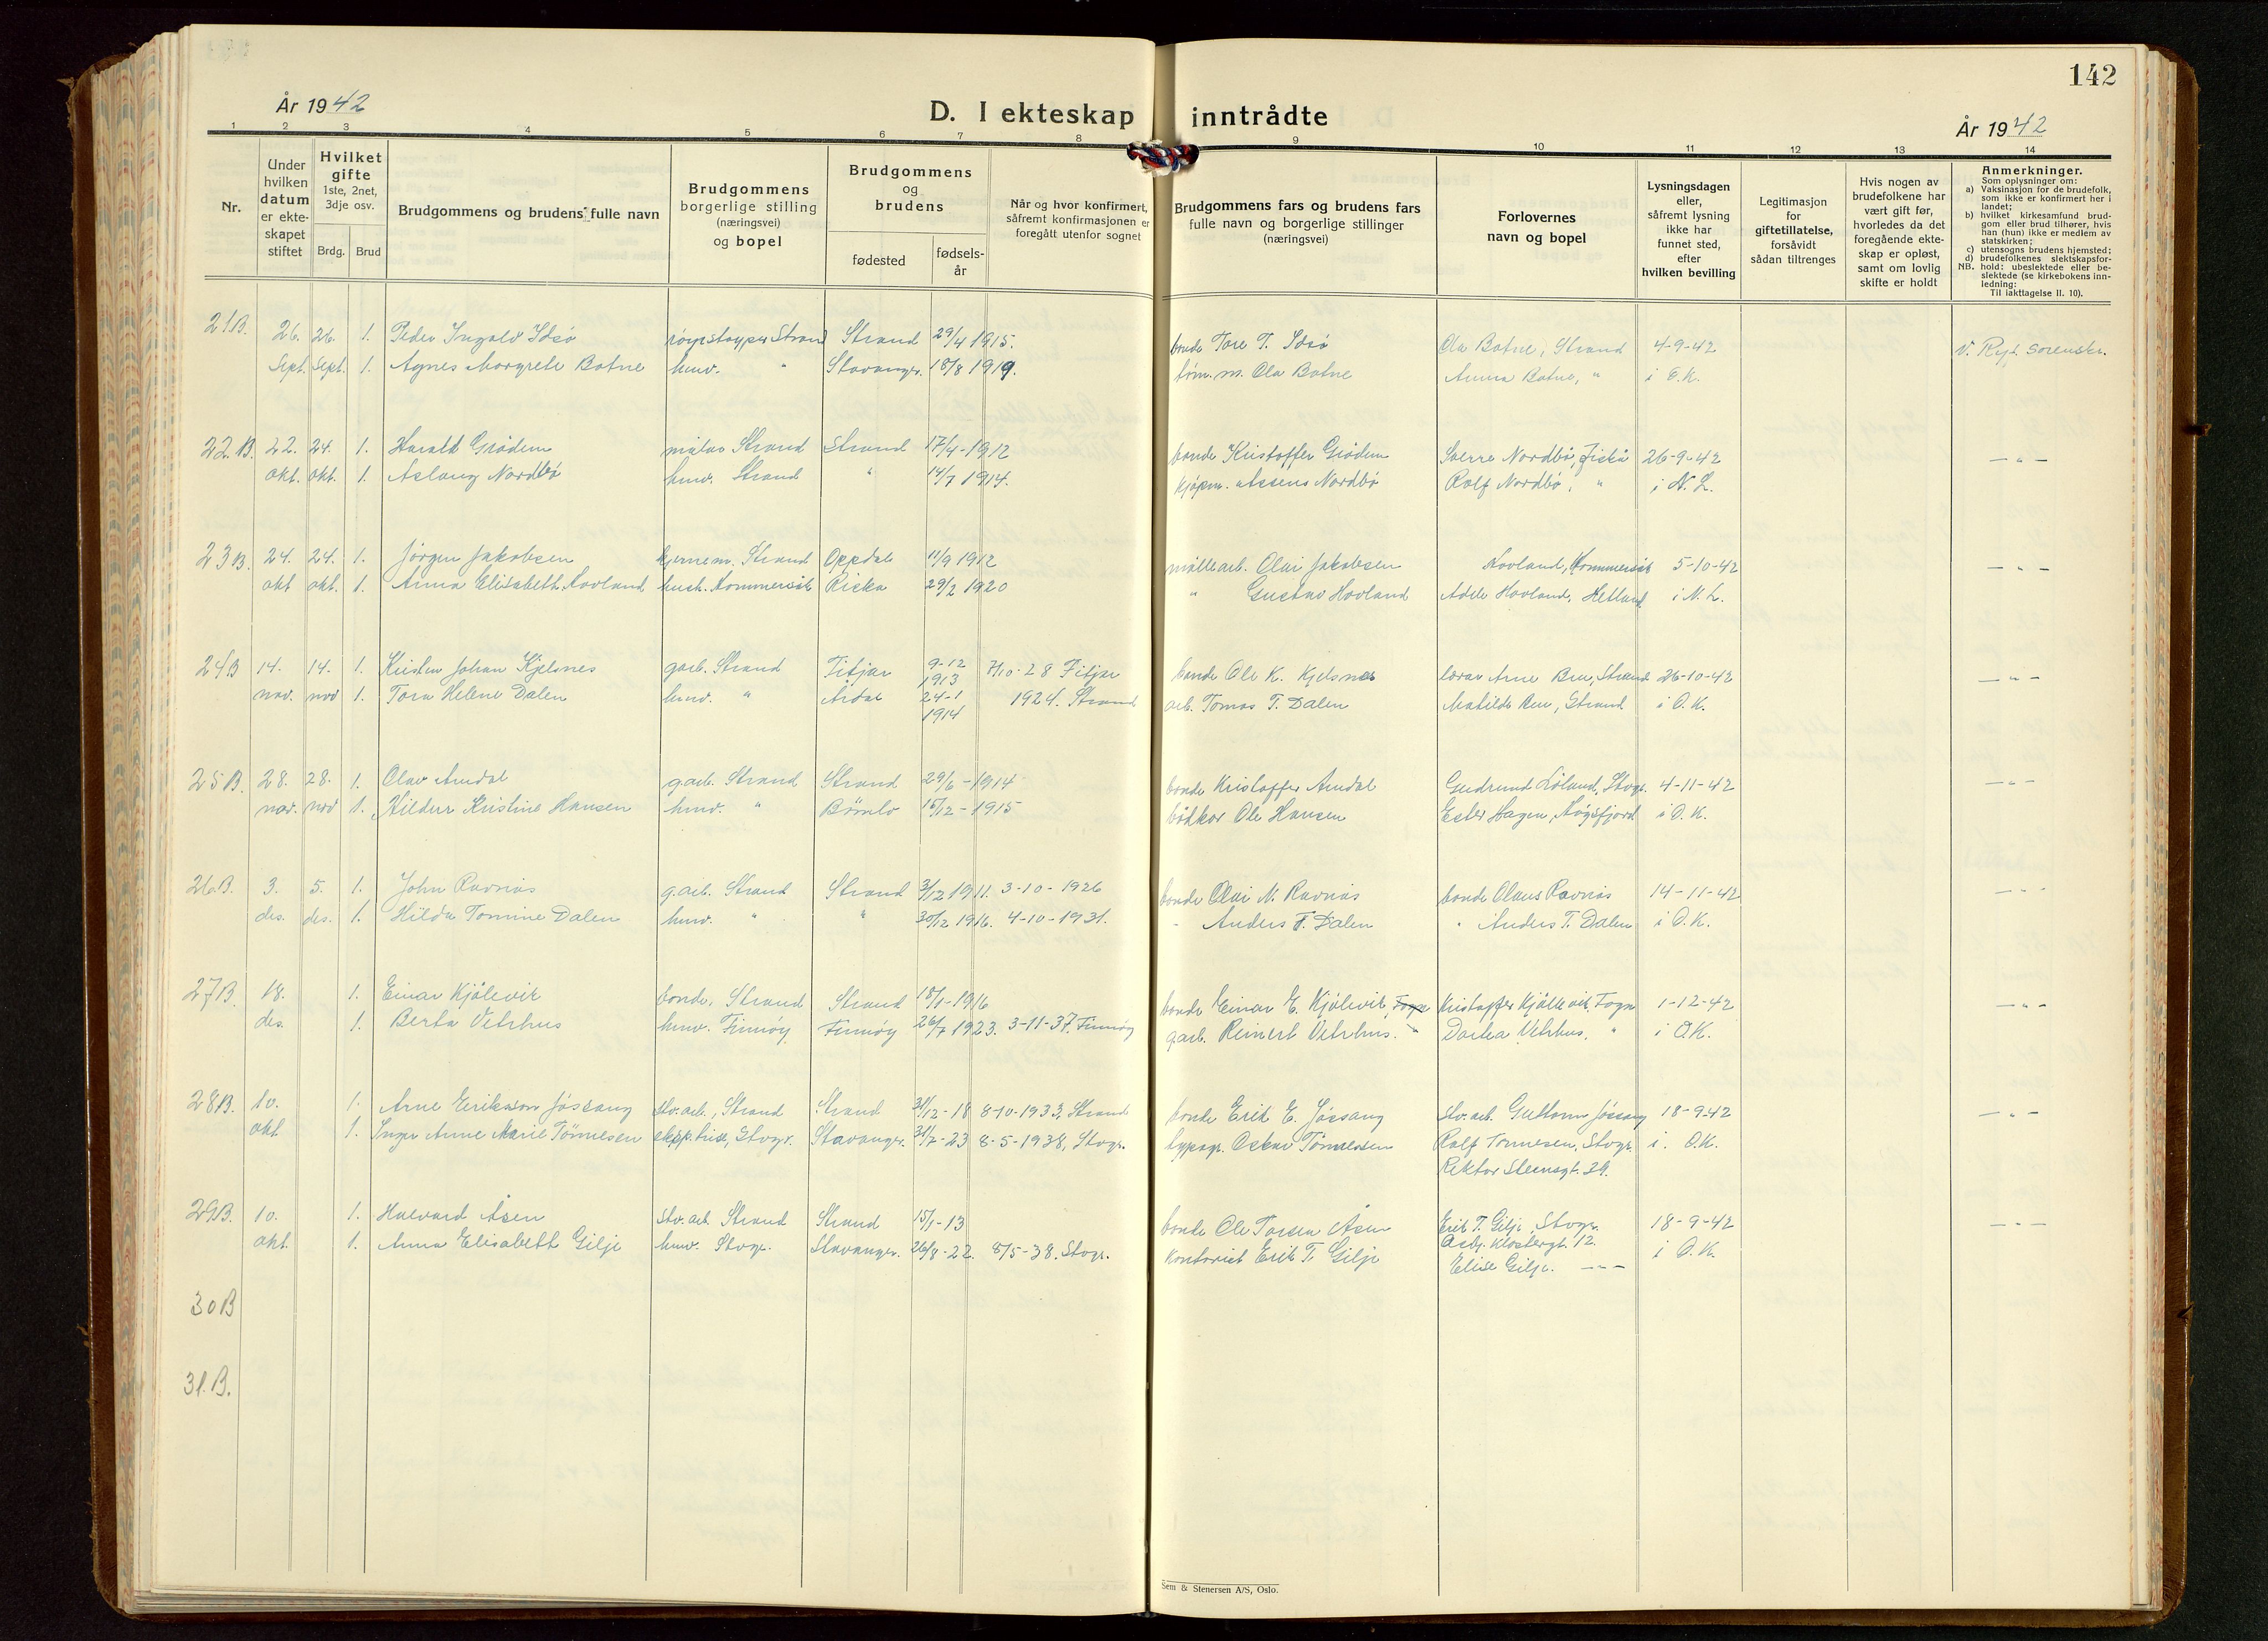 142
År 1942
D. I ekteskap inntrådte
År 1942
1 2 3 4 5 6 7 8 9 10 11 12 13 14
Nr.
Under
hvilken
datum
er ekte-
skapet
stiftet
Hvilket
gifte
1ste, 2net,
3dje osv.
Brdg. Brud
Brudgommens og brudens fulle navn
Brudgommens
borgerlige stilling
(næringsvei)
og bopel
Brudgommens
og
brudens
fødested
fødsels-
år
Når og hvor konfirmert,
såfremt konfirmasjonen er
foregått utenfor sognet
Brudgommens fars og brudens fars
fulle navn og borgerlige stillinger
(næringsvei)
Forlovernes
navn og bopel
Lysningsdagen
eller,
såfremt lysning
ikke har
funnet sted,
efter
hvilken bevilling
Legitimasjon
for
giftetillatelse,
forsåvidt
sådan tiltrenges
Hvis nogen av
brudefolkene har
vært gift før,
hvorledes da det
foregående ekte-
skap er opløst,
samt om lovlig
skifte er holdt
Anmerkninger.
Som oplysninger om:
a) Vaksinasjon for de brudefolk,
som ikke er konfirmert her i
landet;
b) hvilket kirkesamfund brud-
gom eller brud tilhører, hvis
han (hun) ikke er medlem av
statskirken;
c) utensogns brudens hjemsted;
d) brudefolkenes slektskapsfor-
NB. hold: ubeslektede eller be-
slektede (se kirkebokens inn-
ledning:
Til iakttagelse II. 10).
21B. 26. 26. 1. Peder Ingvald Idsø Strand Strand 29/4 1915. bonde Tore T. Idsø Ola Botne, Strand 4-9-42 v. Ryf. Sorenskr.
Sept. Sept. 1. Agnes Margrete Botne husv. " Stavanger. 18/8 1919. tøm.m. Ola Botne Anna Botne, " i O.K.
22.B. 22. 24. 1. Harald Grødem maler Strand Strand 17/4-1912 bonde Kristoffer Grødem Sverre Nordbö, Fiskå 26-9-42 - " -
okt. okt. 1. Aslaug Nordbö husv. Strand " 14/7 1914. kjöpm. Assens Nordbö Rolf Nordbö, " i N.L.
23B. 24. 24. 1. Jörgen Jakobsen Strand Oppdal 11/9 1912 möllearb. Olai Jakobsen Hovland, Hommersåk 5-10-42 - " -
okt okt. 1. Anna Elisabeth Hovland hush. Hommersåk Riska 29/2 1920 " Gustav Hovland Adele Hovland, Hetland i N.L.
24B 14. 14. 1. Kristen Johan Kjelsnes garb. Strand Fitjar 9-12 1913 7/10-28 Fitjar bonde Ole K. Kjelsnes lærer Arne Bru, Strand 26-10-42 - " -
nov. nov 1. Tora Helene Dalen husv. " Årdal 24-1 1914 1924. Strand arb. Tomas T. Dalen Matilde Bru, Strand i O.K.
25B. 28. 28. 1. Olav Amdal garb. Strand Strand 29/6-1914 bonde Kristoffer Amdal Gudrund Löland, Stvgr. 4-11-42 - " -
nov. nov 1. Hildur Kristine Hansen husv. " Bömlo 15/12-1915 bödker Ole Hansen Ester Hagen, Högsfjord i O.K.
26B. 3. 5. 1. John Ravnås g.arb. Strand Strand 3/12 1911. 3-10-1926 bonde Olai N. Ravnås bonde Olaus Ravnås 14-11-42 - " -
des. des. 1. Hilda Tomine Dalen husv. " " 30/12 1916. 4-10-1931. " Anders T. Dalen " Anders T. Dalen i O.K.
27B. 18. 1. Einar Kjölevik bonde, Strand Strand 18/1-1916 bonde Einar E. Kjölevik, Fogn Kristoffer Kjölevik, Fogn 1-12-42 - " -
des. 1. Berta Vetrhus husv. Finnöy Finnöy 26/7 1923. 3-11-37. Finnöy garb. Reinert Vetrhus. " Dortea Vetrhus, " i O.K.
28B. 10. 1. Arne Eriksson Jössang stv.arb., Strand Strand 31/12-18 8-10-1933, Strand bonde Erik E. Jössang stv.arb. Guttorm Jössang 18-9-42 - " -
okt. 1. Inger Anne Marie Tönnesen Stvgr. Stavanger. 31/7-23 8-5-1938, Stvgr. typogr. Oskar Tönnesen Rolf Tönnesen, Stvgr. i O.K.
Rektor Steensgt. 29.
29B. 10. 1. Halvard Åsen stv.arb. Strand Strand 15/1-13 bonde Ole Torsen Åsen Erik T. Gilje, Stvgr. 18-9-42 - " -
okt. 1. Anna Elisabett Gilje husv. Stvgr. Stavanger. 26/8-22. 8/5-38. Stvgr. kontorist Erik T. Gilje Asbj. Klostergt. 12. i O.K.
Elise Gilje. - " -
30B
31.B.
Sem & Stenersen A/S, Oslo.